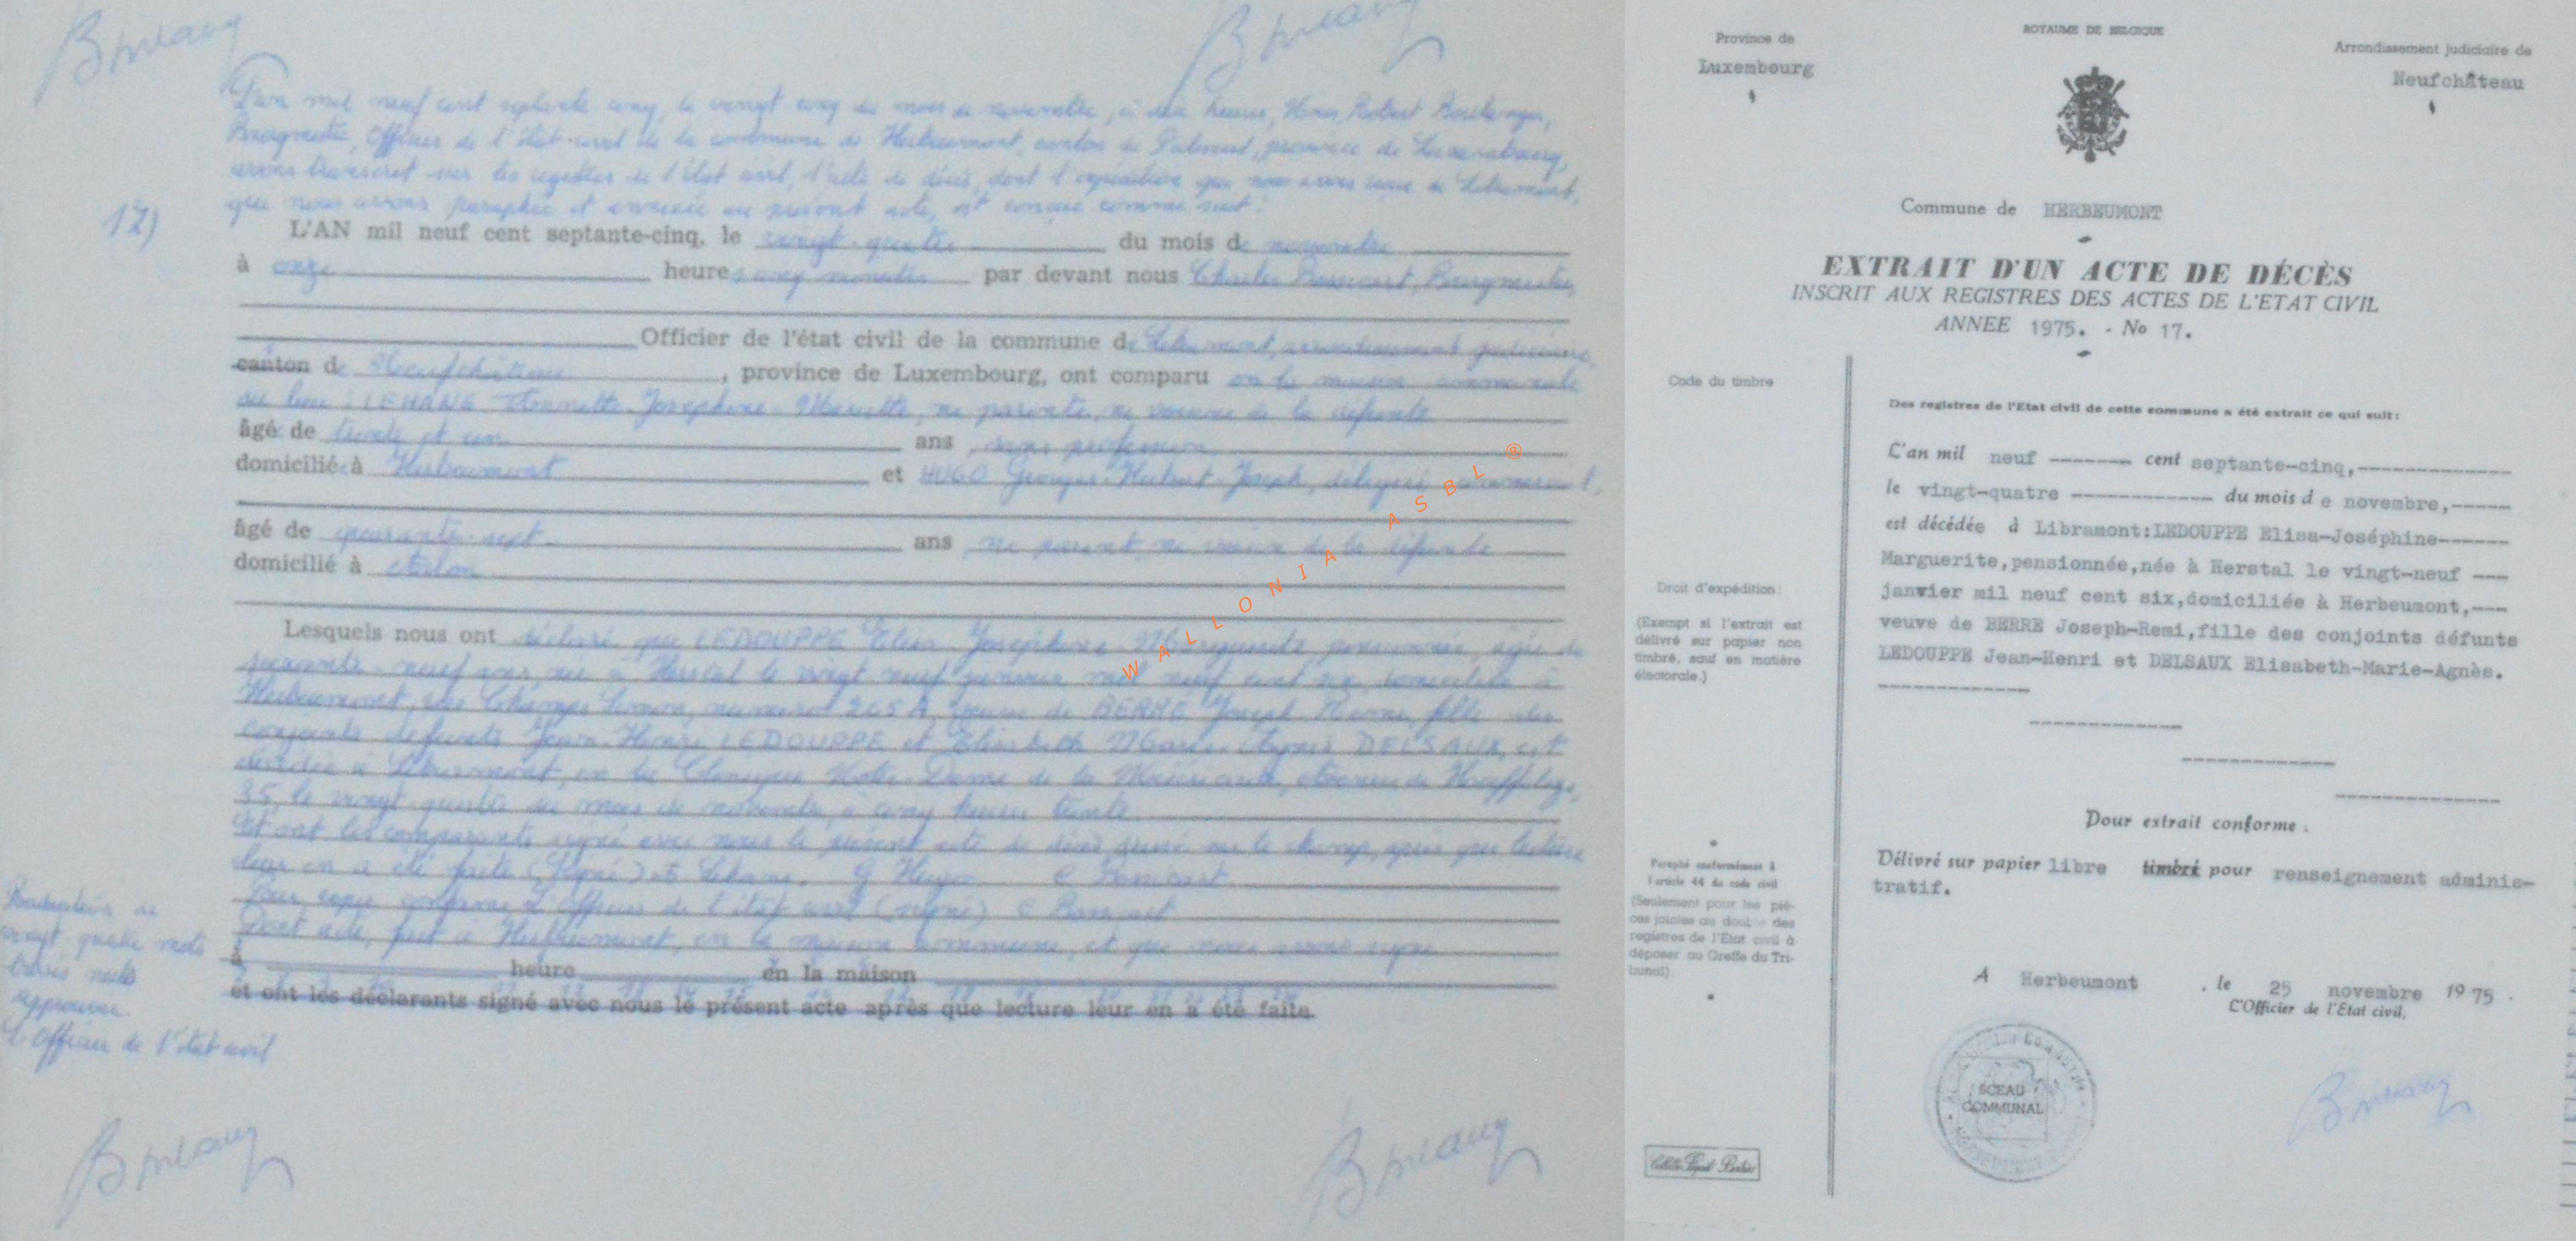 L'an mil neuf cent septante cinq, le vingt cinq du mois de novembre, à dix heures, Nous, Robert Boulanger,
Bourgmestre, Officier de l'état-civil de la commune de Herbeumont, canton de Paliseul, province de Luxembourg,
avons transcrit sur les registres de l'état civil, l'acte de décès, dont l'expédition que nous avons reçue de Libramont,
que nous avons paraphée et annexée au présent acte, est conçue comme suit :
17)
L'AN mil neuf cent septante-cinq, le vingt-quatre du mois de novembre
à onze heures cinq minutes par devant nous Charles Bossicart, Bourgmestre,
Officier de l'état civil de la commune de Libramont, arrondissement judiciaire
canton de Neufchâteau, province de Luxembourg, ont comparu en la maison communale
du lieu : LEHANE Josephine-, ni parente, ni voisine de la défunte
âgée de trente et un ans, sans profession
domiciliée à Herbeumont et HUGO Georges-Hubert-Joseph, délégué commercial,
âgé de quarante-sept ans, ni parent, ni voisin de la défunte
domicilié à Arlon
Lesquels nous ont déclaré que LEDOUPPE Elisa-Joséphine-Marguerite, pensionnée, âgée de
soixante-neuf ans, née à Herstal le vingt neuf janvier mil neuf cent six, domiciliée à
Herbeumont, numéro 265 A, veuve de BERRE Joseph-, fille des
conjoints défunts Jean-Henri LEDOUPPE et Elisabeth Marie-Agnès DELSAUX, est
décédée à Libramont, en la Clinique Notre-Dame de la, Avenue de Houffalize,
35, le vingt-quatre du mois de novembre, à cinq heures trente.
Et ont les comparants signé avec nous le présent acte de décès dressé sur le champ, après que lecture
leur en a été faite (Signé) Lehane. G Hugo C Bossicart.
Pour copie conforme L'Officier de l'état civil (signé) C Bossicart
Dont acte, fait à Herbeumont, en la maison commune, et que nous avons signé
à heure en la maison
et ont les déclarants signé avec nous le présent acte après que lecture leur en a été faite.
vingt-quatre mots
nuls
approuvée.
L'Officier de l'état civil
WALLONIA ASBL ®
Province de
Luxembourg
ROYAUME DE BELGIQUE
Arrondissement judiciaire de
Neufchâteau
Commune de HERBEUMONT
EXTRAIT D'UN ACTE DE DÉCÈS
INSCRIT AUX REGISTRES DES ACTES DE L'ETAT CIVIL
ANNEE 1975. - No 17.
Code du timbre
Des registres de l'Etat civil de cette commune a été extrait ce qui suit :
L'an mil neuf ------- cent septante-cinq,-------------
le vingt-quatre ------------ du mois d e novembre,-----
est décédée à Libramont:LEDOUPPE Elisa-Joséphine------
Marguerite,pensionnée,née à Herstal le vingt-neuf ---
janvier mil neuf cent six,domiciliée à Herbeumont,---
veuve de BERRE Joseph-Remi,fille des conjoints défunts
LEDOUPPE Jean-Henri et DELSAUX Elisabeth-Marie-Agnès.
Droit d'expédition :
(Exempt si l'extrait est
délivré sur papier non
timbré, sauf en matière
électorale.)
Pour extrait conforme :
Délivré sur papier libre timbré pour renseignement adminis-
tratif.
Paraphé conformément à
l'article 44 du code civil
(Seulement pour les piè-
ces jointes au double des
registres de l'Etat civil à
déposer au Greffe du Tri-
bunal)
A Herbeumont , le 25 novembre 19 75 .
L'Officier de l'Etat civil,
SCEAU
COMMUNAL